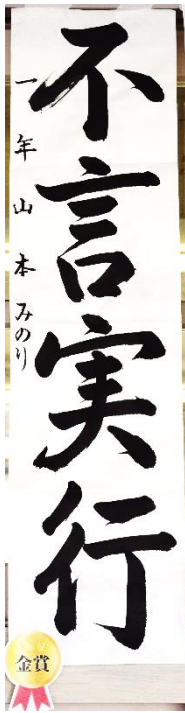 不言実行
一年山本みのり
金賞